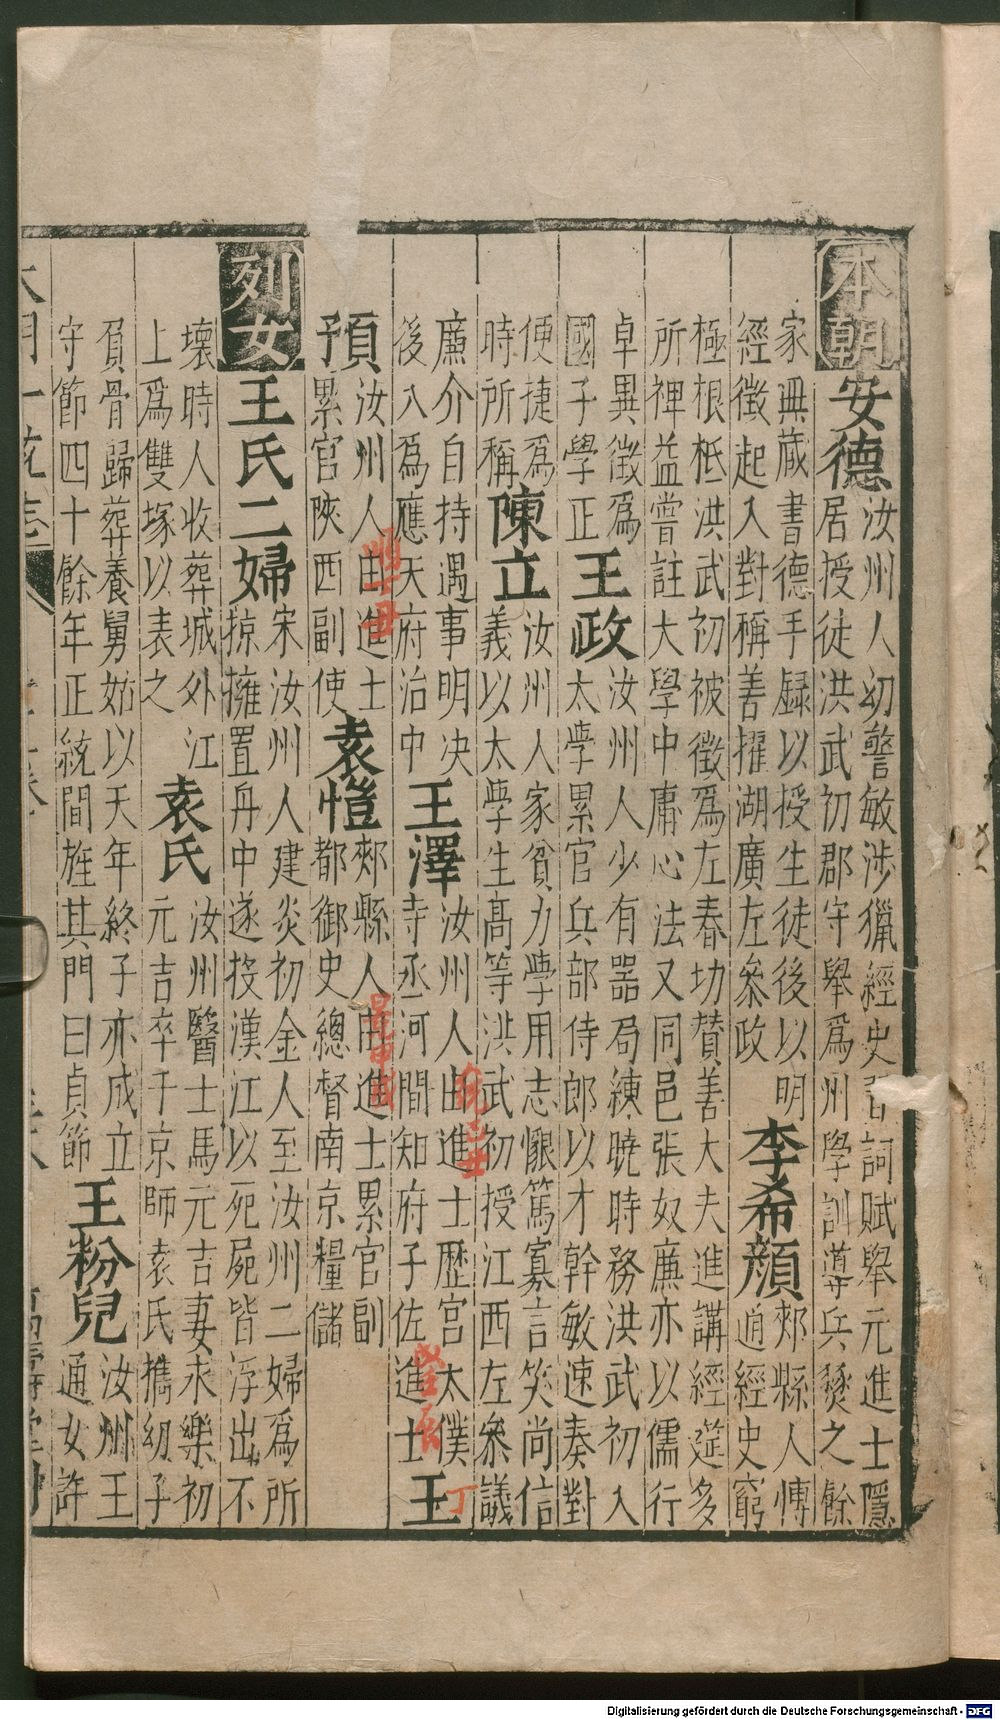 本朝
安德
汝州人幼警敏涉獵經史習詞賦舉元進士隱
居授徒洪武初郡守舉爲州學訓導兵燹之餘
家無藏書德手録以授生徒後以明
經徵起入對稱善擢湖廣左叅政
李希顏
郟縣人慱
通經史窮
極根柢洪武初被徵爲左春坊贊善大夫進講經筵多
所裨益嘗註大學中庸心法又同邑張奴廉亦以儒行
卓異徵爲
國子學正
王政
汝州人少有器局練曉時務洪武初入
太學累官兵部侍郎以才幹敏速奏對
便捷爲
時所稱
陳立
汝州人家貧力學用志懇篤寡言笑尚信
義以太學生高等洪武初授江西左叅議
廉介自持遇事明决
後入爲應天府治中
王澤
汝州人由進士歷官太僕
寺丞河間知府子佐進士
王
丁
預
汝州人由進士
累官陝西副使
袁愷
郟縣人由進士累官副
都御史總督南京糧儲
景甲戌
列女
王氏二婦
宋汝州人建炎初金人至汝州二婦爲所
掠擁置舟中遂投漢江以死屍皆浮出不
壞時人收葬城外江
上爲雙塚以表之
袁氏
汝州醫士馬元吉妻永樂初
元吉卒于京師袁氏攜幼子
負骨歸葬養舅姑以天年終子亦成立
守節四十餘年正統間旌其門曰貞節
王粉兒
汝州王
通女許
大明一統志
Digitalisierung gefördert durch die Deutsche Forschungsgemeinschaft - DFG